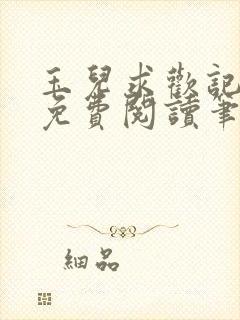 玉兒求歡記
免費閱讀筆
細品